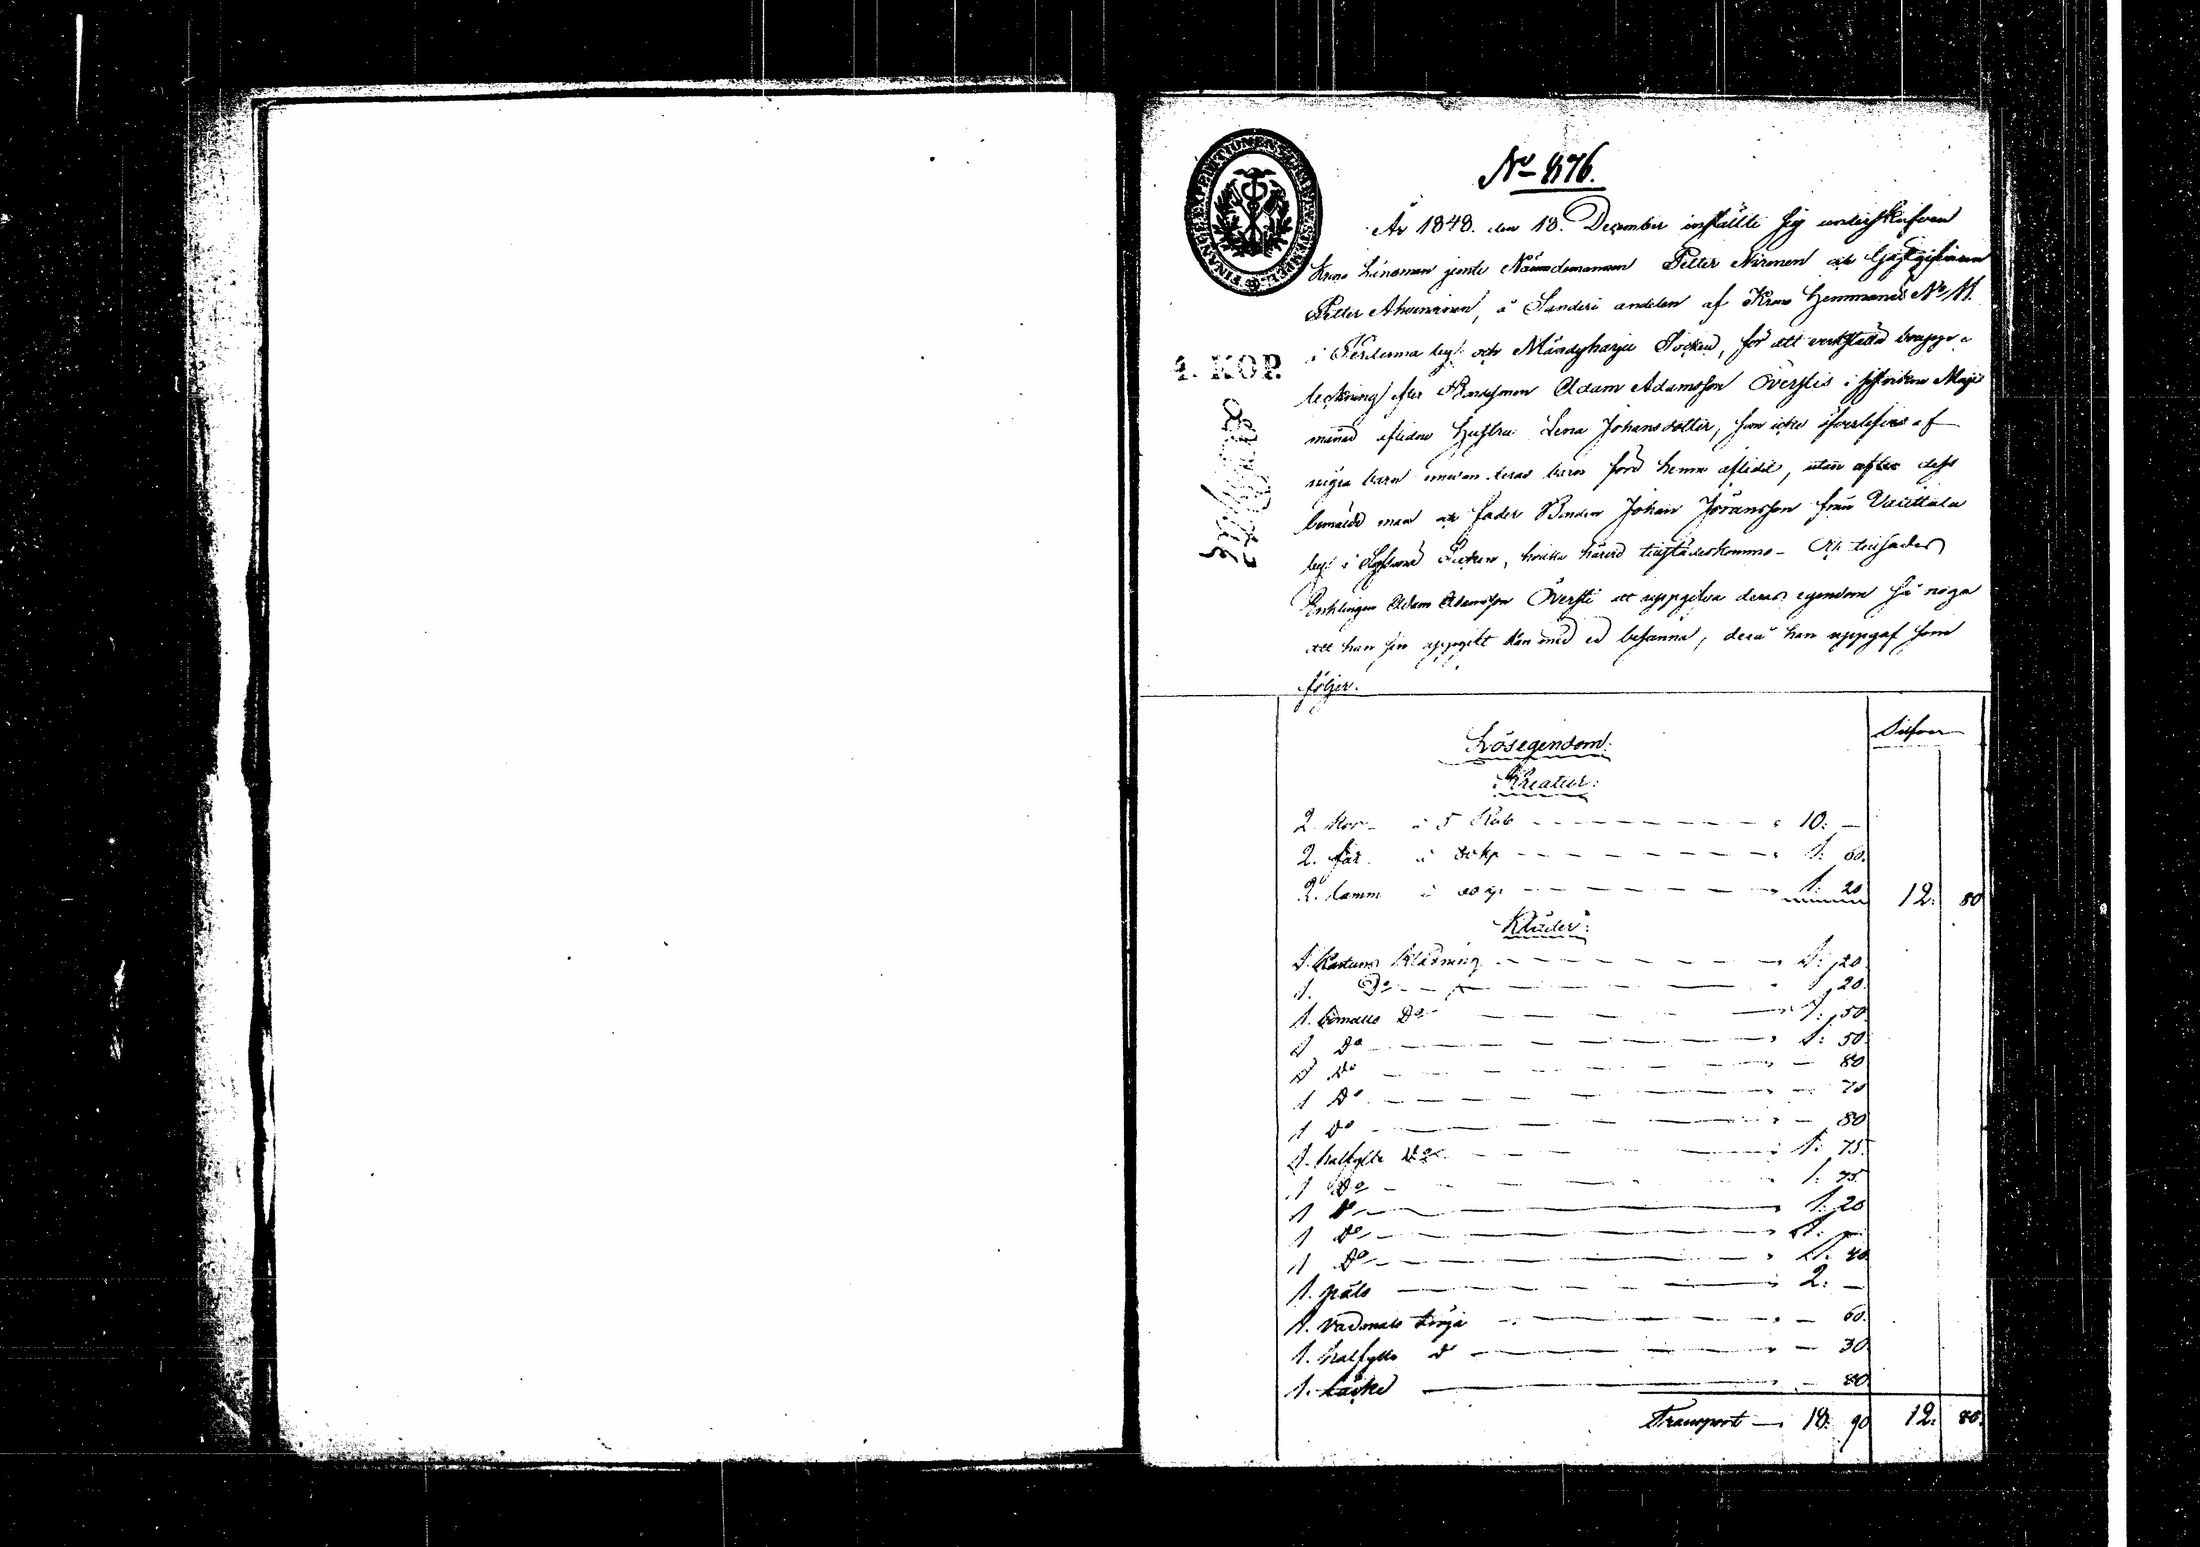 No 876.
År 1848. den 18. December inställte sig underskrifven
Krono Länsman jemte Nämndemannen Petter Nironen och Gästgifvaren
Petter Ahvoninen, å Sanderi andelen af Krono Hemmanet No 11.
i Pertunma by och Mändyharju Socken, för att verkställa bouppe
teckning efter Adam Adamsson Överstis i sistvikne Maji
4. KOP.
månad aflidne Hustru Lena Johansdotter, som icke öfverlefves af
några barn emedan deras barn före henne aflidit, utan efter dess
bemälde man och fader Bonden Johan Jöransson från
by i Socken, hvilka härvid tillstädeskommo. Och tillsades
Enklingen Adam Adamsson Översti att uppgifva deras egendom så noga
att han sin uppgift kan med ed besanna, derå han uppgaf som
följer.
Silfver
Lösegendom:
Kreatur:
2. Kor à 5 Rub 10: —
2. får à 80 kp 1: 60.
2. lamm à 60 kp 1: 20 12: 80
Kläder:
1. Kattuns Klädning 1: 20
1. Do 1: 20.
1. Domells Do 1: 50
1 Do 1: 50.
1 Do — 80
1 Do — 70
1 Do — 80
1. halfylle Do 1: 75.
1 Do 1: 75
1 Do 1: 20
1 Do 1: —
1 Do 1: 40
1. päls 2: —
1. Vadmals tröja — 60.
1. halfylle Do — 30
1. täcke — 80
Transport 18: 90 12: 80.